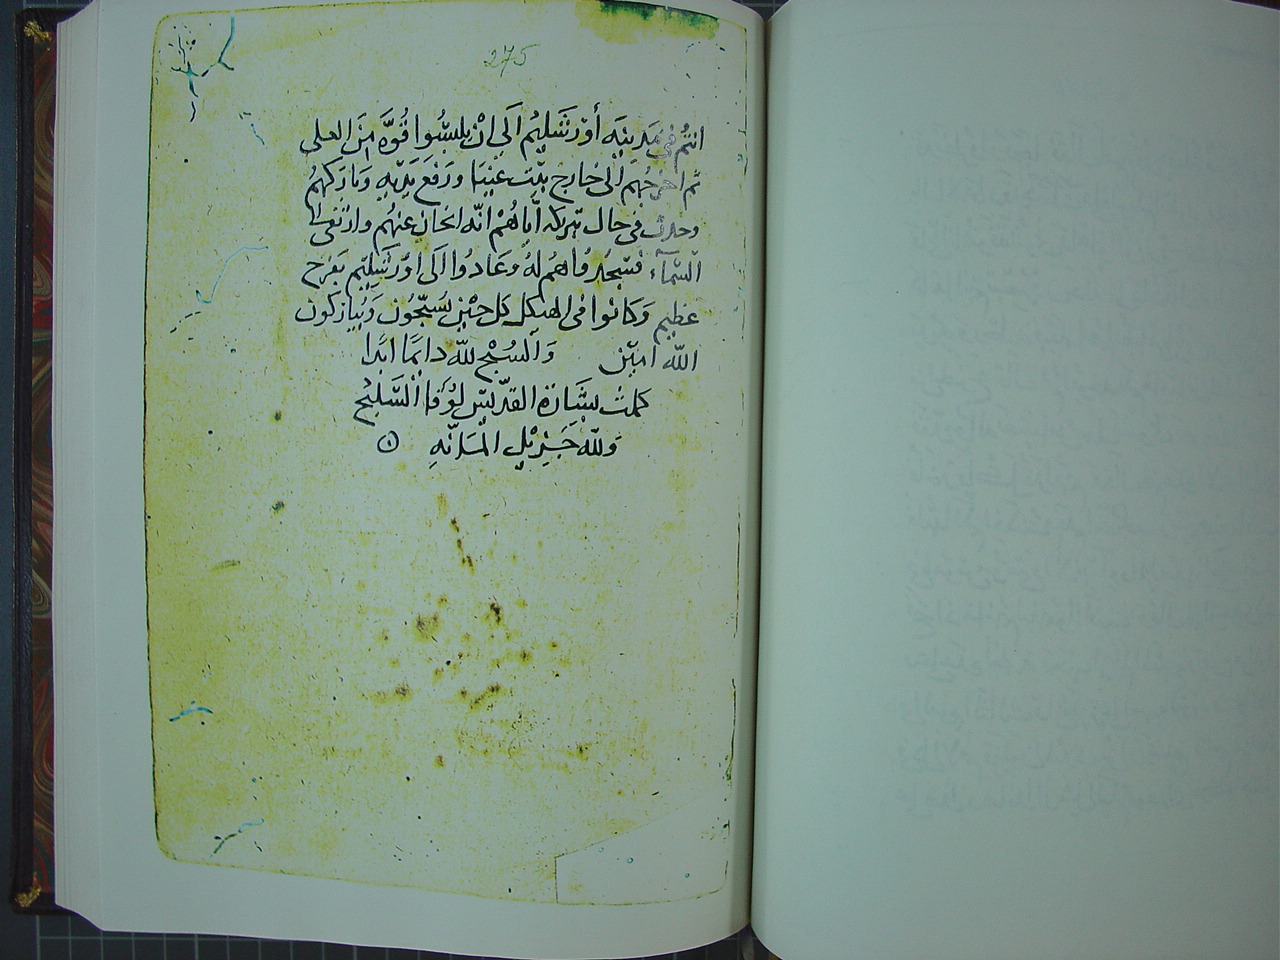 275
انتُم في مَدِينِة أوْرَشَلِيْم اَلى انْ يلبسُوا قُوَّه مِنَ العلى
ثم اخرَجهُم اِلى خارج بيْت عَنْيَا ورَفَع يَدَيْهِ وَبَارَكهُم
وحدث في حال تبريكه اَياهُمْ انّه انحازَ عنهُم وارْتَفَى الى
اَلسّماَء فسَجدُوا هُم لهُ وعَادُوا اَلى اوْرَشَلِيَم بَفرح
عَظيم وَكانوُا في الهيكل كل حيْن يُسبّحُون وَيُبَاركون
الله امِيْن وَالسُبْح للّه دايمًا ابَدًا
كملت بشَارَة القدّيسْ لوُقا السَّلِيْح
وَللّه جَزِيْل المَدَانّهِ